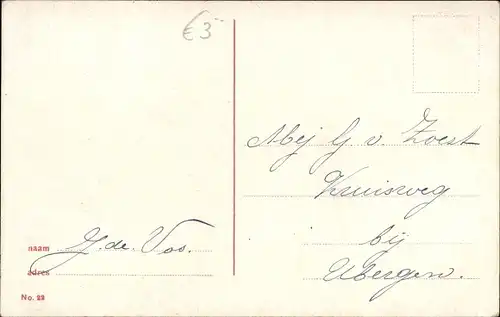 €3
Mej G. v. Zoest
Kruisweg
bij
Ubergen.
naam G. de. Vos.
adres
No. 23